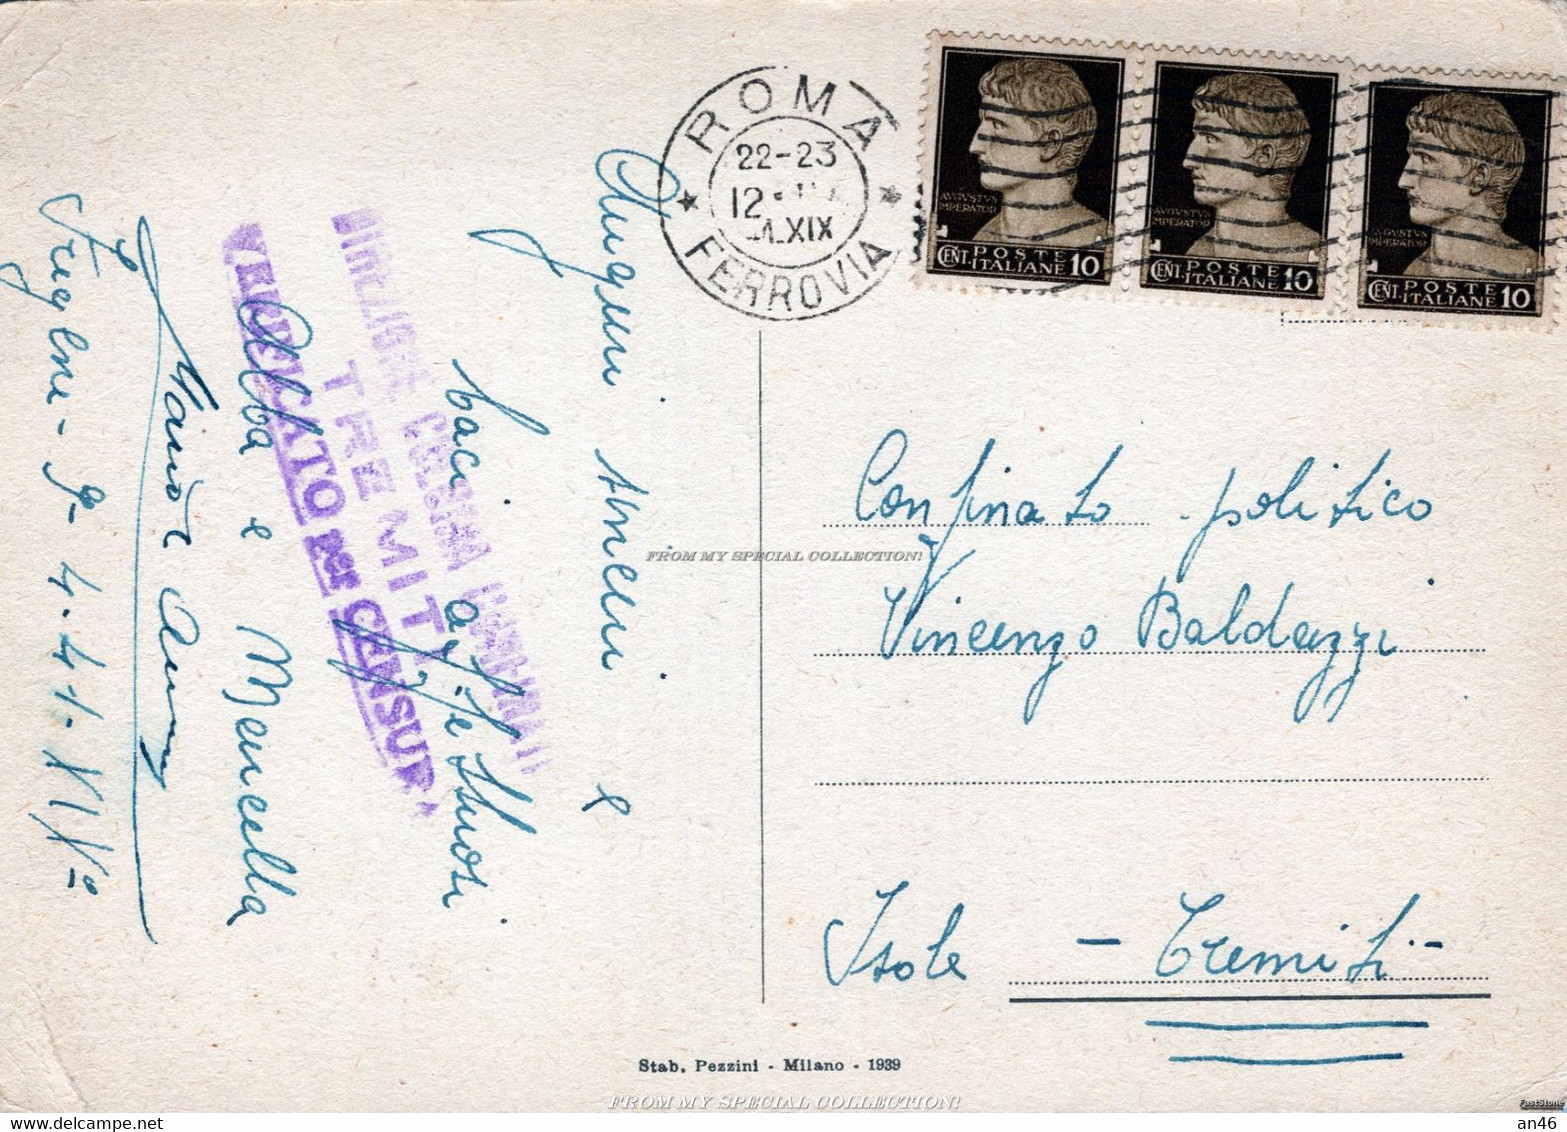 ROMA
22-23
12
XIX
FERROVIA
AVGVSTVS
IMPERATOR
POSTE
CENT. ITALIANE 10
AVGVSTVS
IMPERATOR
POSTE
CENT. ITALIANE 10
AVGVSTVS
IMPERATOR
POSTE
CENT. ITALIANE 10
Auguri sinceri e
baci affettuosi
Alba e Marcella
9-4-41-XIXº
COLONIA CONFINATI
TREMITI
VERIFICATO per CENSURA
Confinato politico
Vincenzo Baldazzi
Isole - Tremiti -
FROM MY SPECIAL COLLECTION!
Stab. Pezzini - Milano - 1939
FROM MY SPECIAL COLLECTION!
FastStone
an46